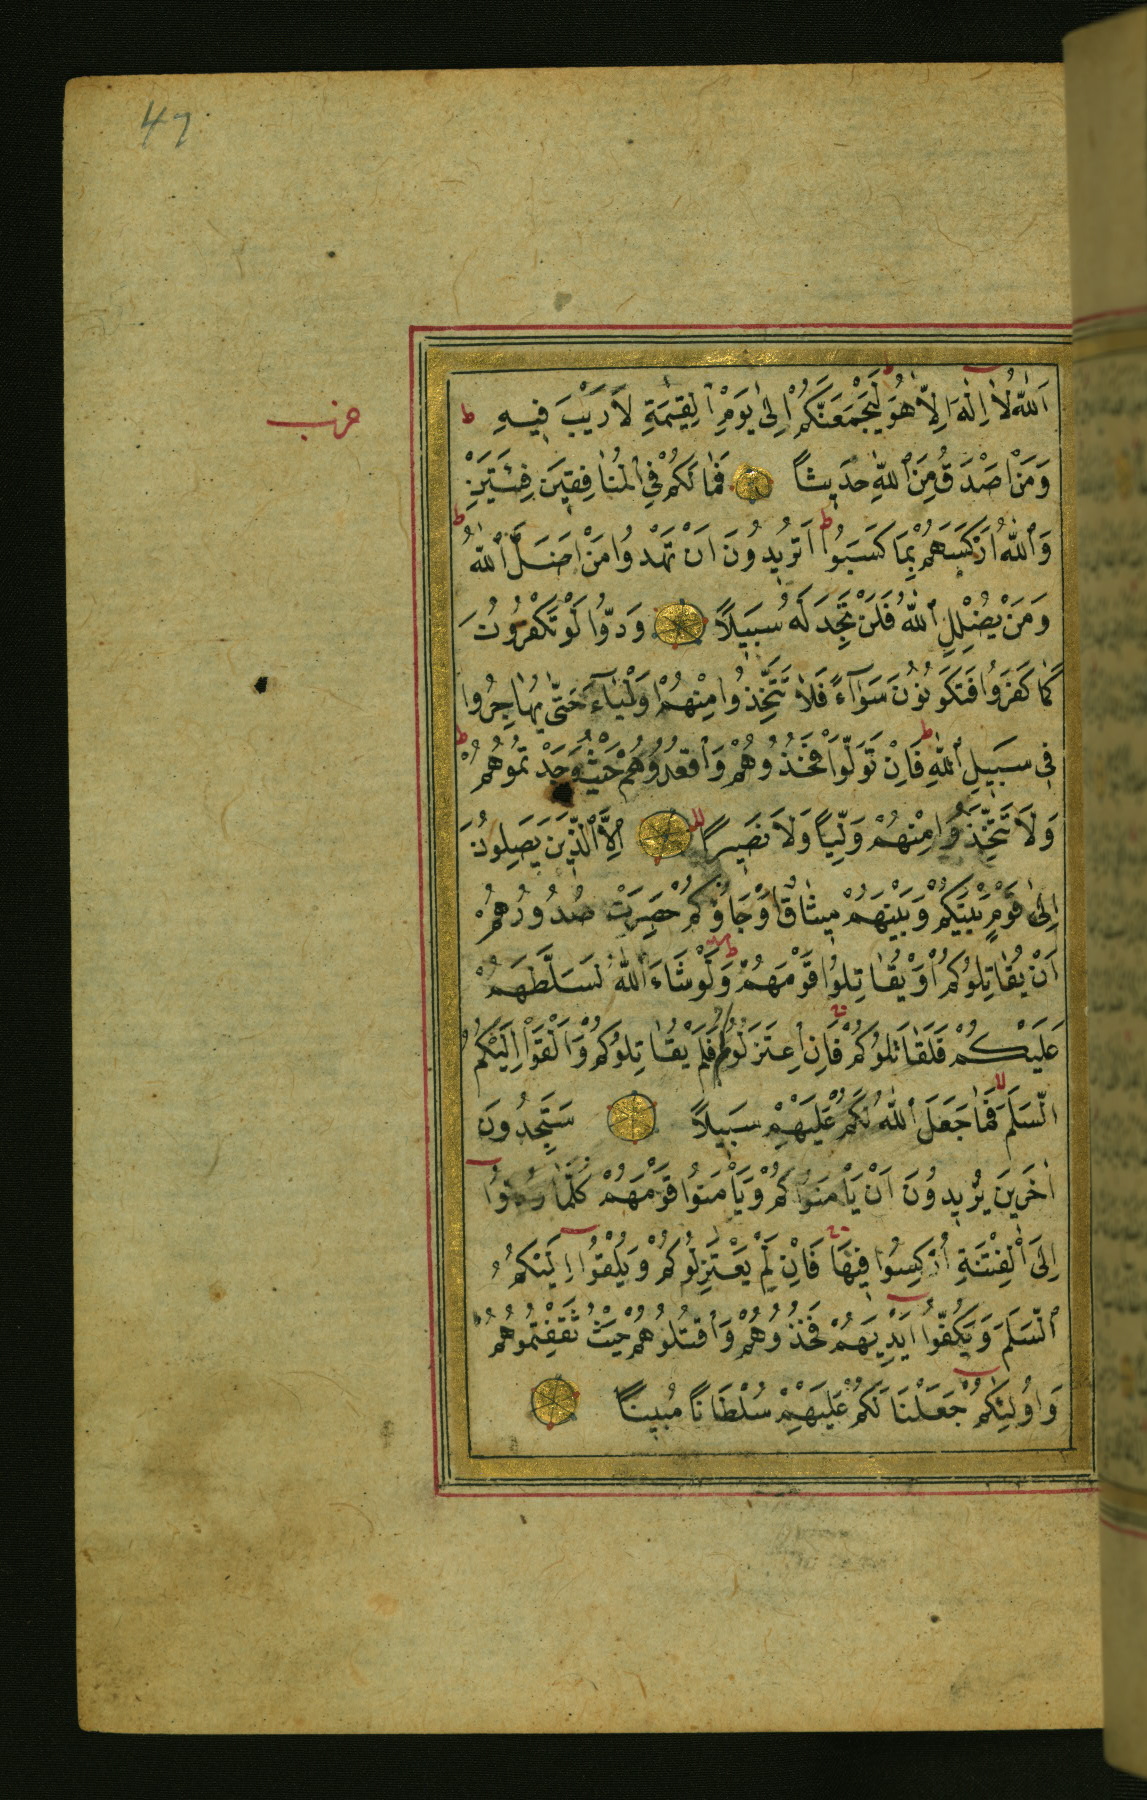 47
حزب
اَللّٰهُ لَا اِلٰهَ اِلَّا هُوَ لَيَجْمَعَنَّكُمْ اِلٰى يَوْمِ الْقِيٰمَةِ لَا رَيْبَ فِيهِ
وَمَنْ اَصْدَقُ مِنَ اللّٰهِ حَدِيثاً فَمَا لَكُمْ فِي الْمُنَافِقِينَ فِئَتَيْنِ
وَاللّٰهُ اَرْكَسَهُمْ بِمَا كَسَبُوا اَتُرِيدُونَ اَنْ تَهْدُوا مَنْ اَضَلَّ اللّٰهُ
وَمَنْ يُضْلِلِ اللّٰهُ فَلَنْ تَجِدَ لَهُ سَبِيلاً وَدُّوا لَوْ تَكْفُرُونَ
كَمَا كَفَرُوا فَتَكُونُونَ سَوَآءً فَلَا تَتَّخِذُوا مِنْهُمْ اَوْلِيَآءَ حَتّٰى يُهَاجِرُوا
فِي سَبِيلِ اللّٰهِ فَاِنْ تَوَلَّوْا فَخُذُوهُمْ وَاقْعُدُوهُمْ حَيْثُ وَجَدْتُمُوهُمْ
وَلَا تَتَّخِذُوا مِنْهُمْ وَلِيّاً وَلَا نَصِيراً اِلَّا الَّذِينَ يَصِلُونَ
اِلٰى قَوْمٍ بَيْنَكُمْ وَبَيْنَهُمْ مِيثَاقٌ اَوْ جَاؤُكُمْ حَصِرَتْ صُدُورُهُمْ
اَنْ يُقَاتِلُوكُمْ اَوْ يُقَاتِلُوا قَوْمَهُمْ وَلَوْ شَاءَ اللّٰهُ لَسَلَّطَهُمْ
عَلَيْكُمْ فَلَقَاتَلُوكُمْ فَاِنِ اعْتَزَلُوكُمْ فَلَمْ يُقَاتِلُوكُمْ وَاَلْقَوْا اِلَيْكُمُ
السَّلَمَ فَمَا جَعَلَ اللّٰهُ لَكُمْ عَلَيْهِمْ سَبِيلاً سَتَجِدُونَ
اٰخَرِينَ يُرِيدُونَ اَنْ يَأْمَنُوكُمْ وَيَأْمَنُوا قَوْمَهُمْ كُلَّمَا رُدُّوا
اِلَى الْفِتْنَةِ اُرْكِسُوا فِيهَا فَاِنْ لَمْ يَعْتَزِلُوكُمْ وَيُلْقُوا اِلَيْكُمُ
السَّلَمَ وَيَكُفُّوا اَيْدِيَهُمْ فَخُذُوهُمْ وَاقْتُلُوهُمْ حَيْثُ ثَقِفْتُمُوهُمْ
وَاُولٰئِكُمْ جَعَلْنَا لَكُمْ عَلَيْهِمْ سُلْطَاناً مُبِيناً